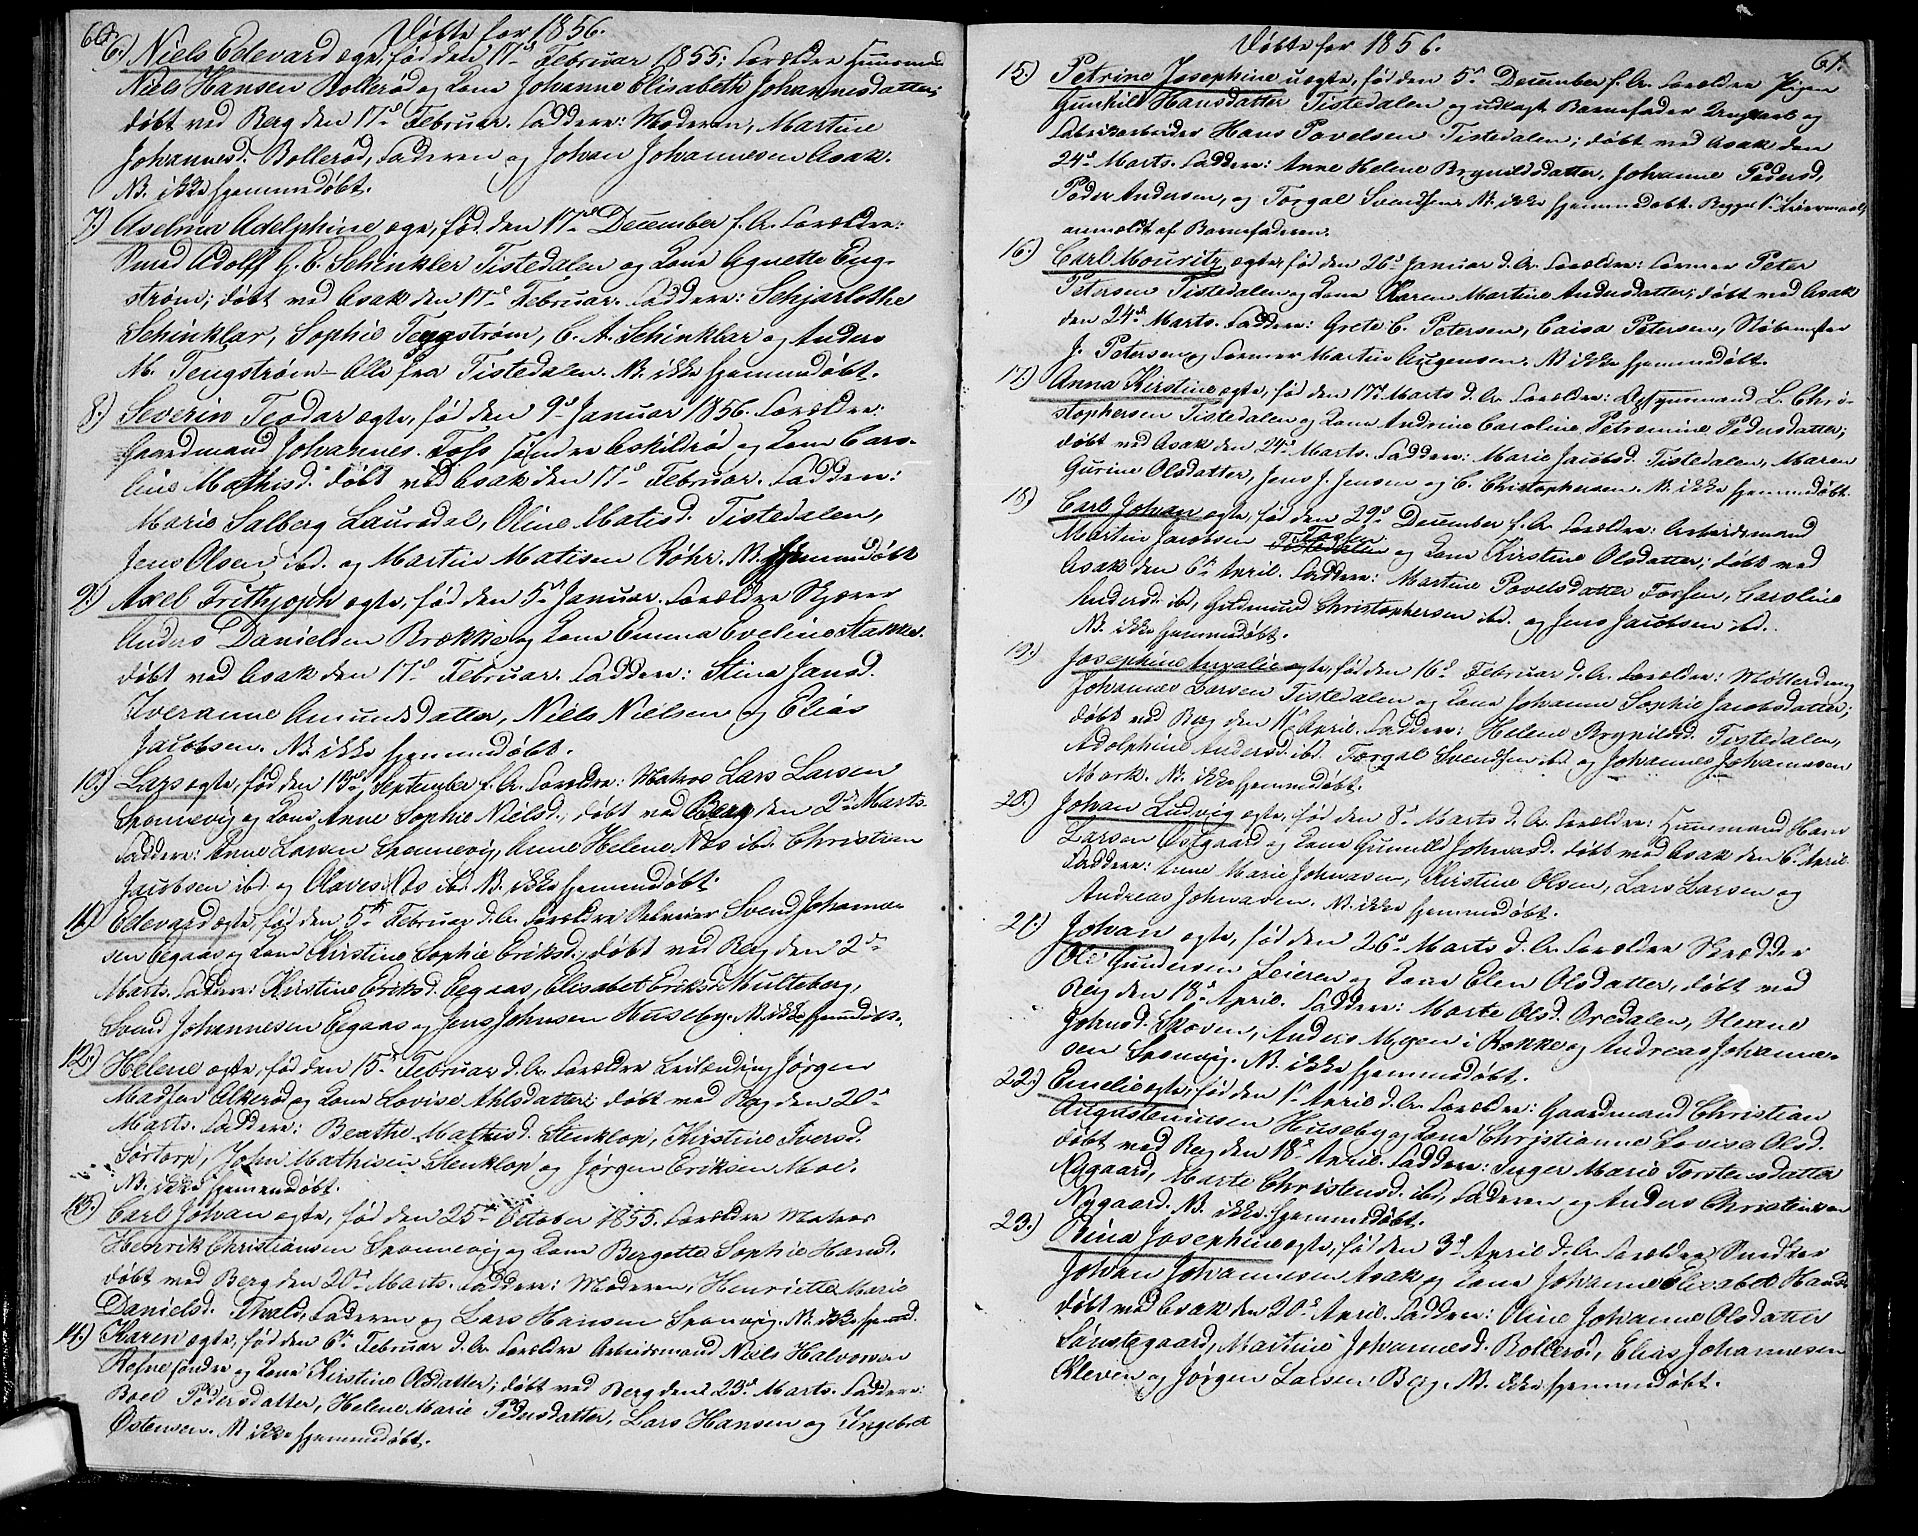 60.
Døbte for 1856.
6.) Niels Edevard ægte, fød den 17de Februar 1855; Forældre Huusmand
Niels Hansen Bollerød og Kone Johanne Elisabeth Johannesdatter;
døbt ved Berg den 17de Februar. Faddere: Moderen, Martine
Johannesd. Bollerød, Faderen og Johan Johannesen Asak.
NB. ikke hjemmedøbt.
7.) Aselma Adelphine ægte, fød den 17de December f. A. Forældre:
Smed Adolff G. E. Schinkler Tistedalen og Kone Agnette Eng-
strøm; døbt ved Asak den 17de Februar. Faddere: Schjarlothe
Schinklar, Sophie Tengstrøm, C. A. Schinklar og Anders
M. Tengstrøm – Alle fra Tistedalen. NB. ikke hjemmedøbt.
8.) Severin Teodar ægte, fød den 9de Januar 1856. Forældre:
Gaardmand Johannes Tofs søndre Askildrød og Kone Caro-
line Mathisd. døbt ved Asak den 17de Februar. Faddere:
Marie Salberg Laursdal, Oline Matisd. Tistedalen,
Jens Olsen ibd. og Martin Matisen Røhr. NB. hjemmedøbt
9.) Axel Frithjoph ægte, fød den 5te Januar. Forældre Skjærer
Anders Danielsen Brække og Kone Emma Eveline Stakke.
døbt ved Asak den 17de Februar. Faddere: Stina Jansd.
Iveranne Amundsdatter, Niels Nielsen og Elias
Jacobsen. NB. ikke hjemmedøbt.
10.) Lars ægte, fød den 19de September f. A. Forældre: Matros Lars Larsen
Sponnevig og Kone Anne Sophie Nielsd., døbt ved Berg den 2de Marts
Faddere: Anne Larsen Sponnevig, Anne Helene Næs ibd. Christian
Jacobsen ibd. og Olaves Næs ibd. NB. ikke hjemmedøbt.
11.) Edevard ægte, fød den 5te Februar d. A. Forældre Selveier Svend Johanne-
sen Eegaas og Kone Kirstine Sophie Eriksd., døbt ved Berg den 2de
Marts. Faddere: Kirstine Eriksd. Eegaas, Elisabet Eriksd. Multeberg,
Svend Johannesen Eegaas og Jens Johnsen Huseby. NB. ikke hjemmedøbt.
12.) Helene ægte, fød den 15de Februar d. A. Forældre Leilænding Jørgen
Madsen Alkerød og Kone Lovise Ahlsdatter; døbt ved Berg den 20de
Marts. Faddere: Beathe Mathisd. Stenklop, Kirstine Iversd.
Sørtorp, John Mathisen Stenklop og Jørgen Eriksen Moe.
NB. ikke hjemmedøbt.
13.) Carl Johan ægte, fød den 25de October 1855. Forældre Matros
Henrik Christiansen Sponnevig og Kone Bergette Sophie Hansd.
døbt ved Berg den 20de Marts. Faddere: Moderen, Henriette Marie
Danielsd. Thvald, Faderen og Lars Hansen Sponvig. NB. ikke hjemmd.
14.) Karen ægte, fød den 6te Februar d. A. Forældre Arbeidsmand Niels Halvorsen
Refne søndre og Kone Kirstine Olsdatter; døbt ved Berg den 23de Marts. Faddere:
Boel Pedersdatter, Helene Marie Pedersdatter, Lars Hansen og Ingebret
Østensen. NB ikke hjemmedøbt.
61.
Døbte for 1856.
15.) Petrine Josephine uægte, fød den 5te December f. A. Forældre Pigen
Gunhild Hansdatter Tistedalen og udlagt Barnefader Ungkarl og
Fabrikarbeider Hans Povelsen Tistedalen; døbt ved Asak den
24de Marts. Faddere: Anne Helene Brynildsdatter, Johanne Pedersd,
Peder Andersen, og Torgal Svendsen. NB. ikke hjemmedøbt. Begges 1ste Leiermaal
anmældt af Barnefaderen.
16.) Carl Mouritz ægte, fød den 26de Januar d. A. Forældre: Former Peter
Petersen Tistedalen og Kone Karen Martine Andersdatter; døbt ved Asak
den 24de Marts. Faddere: Grete C. Petersen, Caisa Petersen, Støbemester
J. Petersen og Former Martin Augensen. NB ikke hjemmedøbt.
17.) Anna Kirstine ægte, fød den 17de Marts d. A. Forældre: Opsynsmand L. Chri-
stophersen Tistedalen og Kone Andrine Caroline Petromine Pedersdatter;
døbt ved Asak den 24de Marts. Faddere: Marie Jacobsd. Tistedalen, Maren
Gurine Olsdatter, Jens J. Jensen og C. Christophersen. NB. ikke hjemmedøbt.
18.) Carl Johan ægte, fød den 29de December f. A. Forældre: Arbeidsmand
Martin Jacobsen Tistedalen og Kone Kirstine Olsdatter; døbt ved
Asak den 6te April. Faddere: Martine Povelsdatter Torsen, Caroline
Andersd. ibd, Gudmund Christophersen ibd. og Jens Jacobsen ibd.
NB. ikke hjemmedøbt.
19.) Josephine Angalie ægte, fød den 16de Februar d. A. Forældre: Møllerdreng
Johannes Larsen Tistedalen og Kone Johanne Sophie Jacobsdatter;
døbt ved Berg den April. Faddere: Helene Brynilsd. Tistedalen,
Adolphine Andersd. ibd. Torgal Svendsen ibd og Johannes Johannesen
Mørk. NB. ikke hjemmedøbt.
20.) Johan Ludvig ægte, fød den 8de Marts d. A. Forældre: Huusmand Hans
Larsen Østgaard og Kone Gunnild Johnasd. døbt ved Asak den 6te April
Faddere: Anne Marie Johnasen, Kirstine Olsen, Lars Larsen og
Andreas Johnasen. NB. ikke hjemmedøbt.
21.) Johan ægte, fød den 26de Marts d. A. Forældre Skrædder
Ole Gundersen Leieren og Kone Elen Olsdatter, døbt ved
Berg den 18de April. Faddere: Marte Olsd. Oredalen, Sterne
Johnsd. Skoven, Anders Mogen i Kokke og Andreas Johanne-
sen Sponvig. NB. ikke hjemmedøbt.
22.) Emelie ægte, fød den 1ste April d. A. Forældre: Gaardmand Christian
Augustinusen Huseby og Kone Christianne Lovisa Olsd.
døbt ved Berg den 18de April. Faddere: Inger Marie Torstensdatter
Nygaard, Marte Christensd. ibd, Faderen og Anders Christensen
Nygaard. NB. ikke hjemmedøbt.
23.) Stina Josephine ægte, fød den 3de April d. A. Forældre Snedker
Johan Johannesen Asak og Kone Johanne Elisabet Hansd.
døbt ved Asak den 20de April. Faddere: Oline Johanne Olsdatter
Lønstegaard, Martine Johannesd. Bollerød, Elias Johannesen
Kleven og Jørgen Larsen Berg. NB. ikke hjemmedøbt.